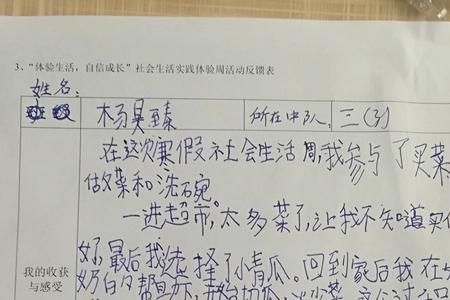 3、"体验生活，自信成长"社会生活实践体验周活动反馈表
姓名:
杨昊臻 所在中队: 三(3)
在这次寒假社会生活周,我参与了买菜
做菜和洗碗
一进超市,太多菜了,让我不知道买
好,最后我选择了小青瓜。回到家后我在
奶的帮
我的收获
与感受